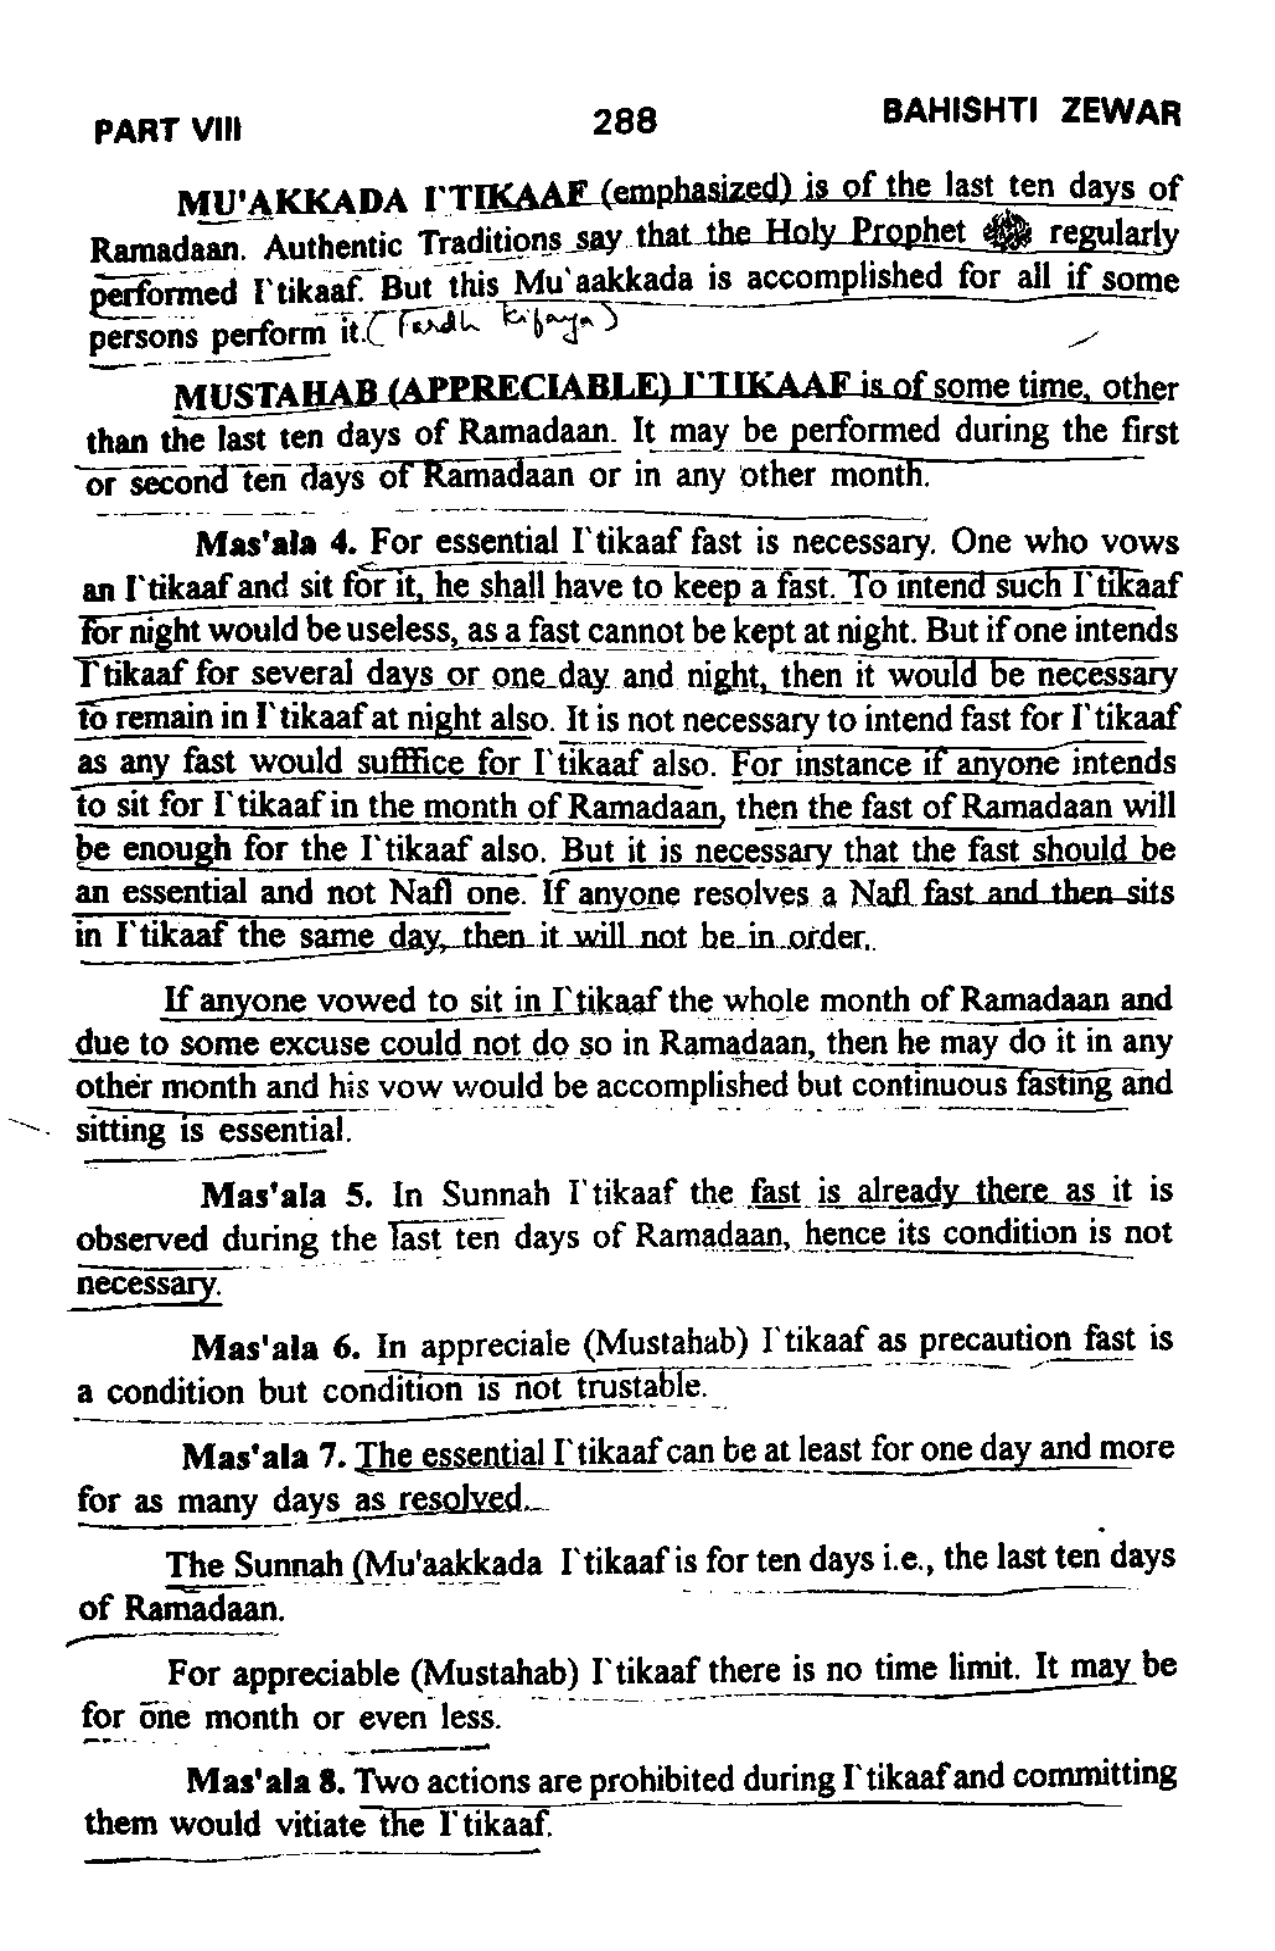 PART VIII 288 BAHISHTI ZEWAR
MU'AKKADA I`TIKAAF (emphasized) is of the last ten days of
Ramadaan. Authentic Traditions say that the Holy Prophet ﷺ regularly
performed I`tikaaf. But this Mu`aakkada is accomplished for all if some
persons perform it. (Fardh Kifaya)
MUSTAHAB (APPRECIABLE) I`TIKAAF is of some time, other
than the last ten days of Ramadaan. It may be performed during the first
or second ten days of Ramadaan or in any other month.
Mas'ala 4. For essential I`tikaaf fast is necessary. One who vows
an I`tikaaf and sit for it, he shall have to keep a fast. To intend such I`tikaaf
for night would be useless, as a fast cannot be kept at night. But if one intends
I`tikaaf for several days or one day and night, then it would be necessary
to remain in I`tikaaf at night also. It is not necessary to intend fast for I`tikaaf
as any fast would sufffice for I`tikaaf also. For instance if anyone intends
to sit for I`tikaaf in the month of Ramadaan, then the fast of Ramadaan will
be enough for the I`tikaaf also. But it is necessary that the fast should be
an essential and not Nafl one. If anyone resolves a Nafl fast and then sits
in I`tikaaf the same day, then it will not be in order.
If anyone vowed to sit in I`tikaaf the whole month of Ramadaan and
due to some excuse could not do so in Ramadaan, then he may do it in any
other month and his vow would be accomplished but continuous fasting and
sitting is essential.
Mas'ala 5. In Sunnah I`tikaaf the fast is already there as it is
observed during the last ten days of Ramadaan, hence its condition is not
necessary.
Mas'ala 6. In appreciale (Mustahab) I`tikaaf as precaution fast is
a condition but condition is not trustable.
Mas'ala 7. The essential I`tikaaf can be at least for one day and more
for as many days as resolved.
The Sunnah (Mu'aakkada I`tikaaf is for ten days i.e., the last ten days
of Ramadaan.
For appreciable (Mustahab) I`tikaaf there is no time limit. It may be
for one month or even less.
Mas'ala 8. Two actions are prohibited during I`tikaaf and committing
them would vitiate the I`tikaaf.